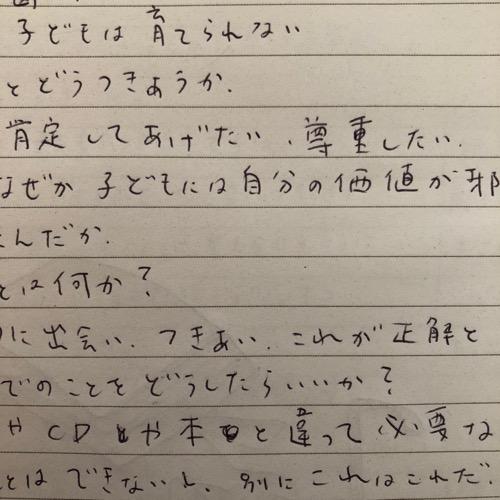 子どもは育てられない
とどうつきあうか.
肯定してあげたい、尊重したい.
なぜか子どもには自分の価値が邪
んだか.
とは何か?
に出会い、つきあい、これが正解と
でのことをどうしたらいいか?
や CD や本と違って必要な
とはできないし、別にこれはこれだ.